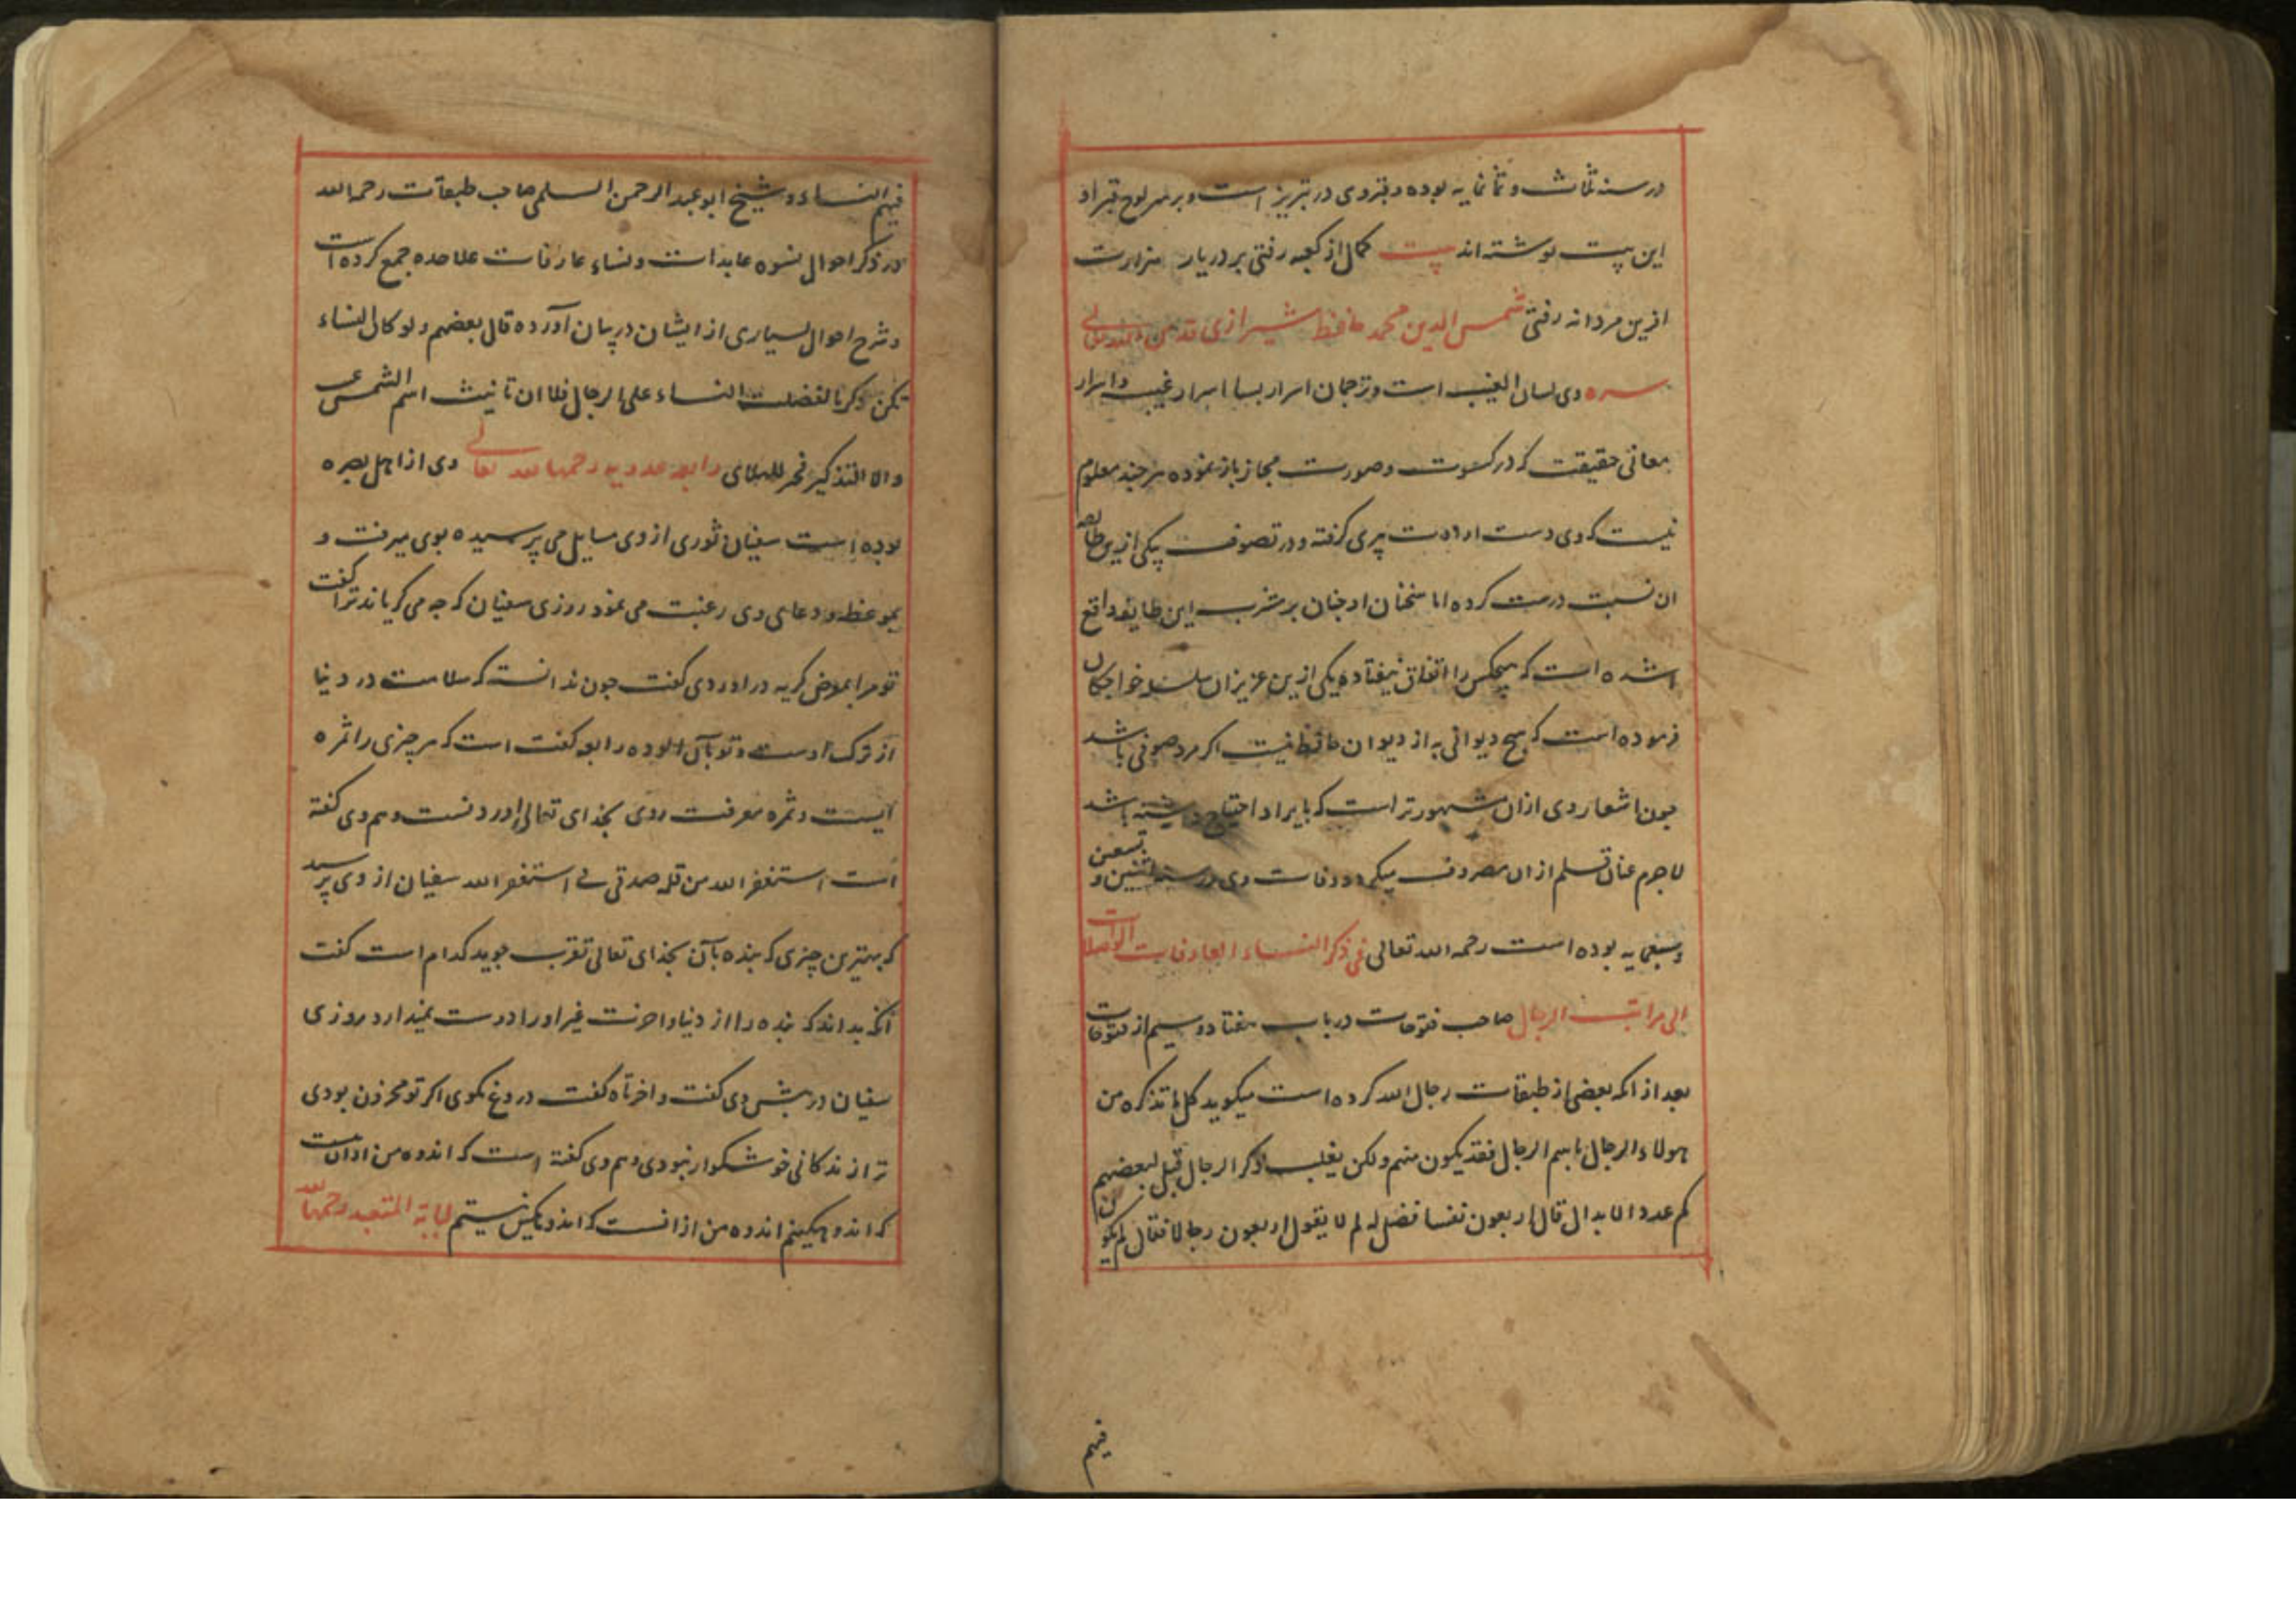 در سنه ثلاث و ثمانمایه بوده و قبر وی در تبریز است و بر سر لوح قبر او
این بیت نوشته اند بیت کمال از کعبه رفتی بر در یار هزارت
ازین مردانه رفتی شمس الدین محمد حافظ شیرازی قدس الله تعالی
سره وی لسان الغیب است و ترجمان اسرار بسا اسرار غیبیه و اسرار
معانی حقیقت که در کسوت و صورت مجاز باز نموده هر چند معلوم
نیست که وی دست ارادت پیری گرفته و در تصوف بیکی ازین طایفه
ان نسبت درست کرده اما سخنان او چنان بر مشرب این طایفه واقع
شده است که هیچکس را اتفاق نیفتاده یکی ازین عزیزان سلسله خواجکان
فرموده است که هیچ دیوانی به از دیوان حافظ نیست اکر مرد صوفی باشد
چون اشعار وی ازان مشهورتر است که بایراد احتیاج داشته باشد
لاجرم عنان قلم ازان مصروف میکردد وفات وی در سنه اثنین و تسعین
و سبعمایه بوده است رحمه الله تعالی فی ذکر النساء العارفات الواصلات
الی مراتب الرجال صاحب فتوحات در باب هفتاد و سیم از فتوحات
بعد از انکه بعضی از طبقات رجال الله کرده است میکوید کل ما تذکره من
هولاء الرجال باسم الرجال فقد یکون منهم ولکن یغلب ذکر الرجال قیل لبعضهم
کم عدد الابدال قال اربعون نفسا فقیل له لم لا یقول اربعون رجالا فقال لم یکون
فیهم
فیهم النساء و شیخ ابو عبد الرحمن السلمی صاحب طبقات رحمه الله
در ذکر احوال نسوه عابدات و نساء عارفات علاحده جمع کرده است
و شرح احوال بسیاری از ایشان در بیان آورده قال بعضهم ولو کان النساء
کمن ذکرنا لفضلت النساء علی الرجال فلا ان تانیث اسم الشمس عیب
ولا التذکیر فخر للهلال رابعه عدویه رحمها الله تعالی وی از اهل بصره
بوده است سفیان ثوری از وی مسایل می پرسیده بوی میرفت و
بموعظه و دعای وی رغبت می نمود روزی سفیان که چه می کریاند ترا گفت
تو مرا بمعرض کریه در اوردی گفت چون ندانسته که سلامت در دنیا
از ترک اوست و تو بآن الوده رابعه گفت است که هر چیزی را ثمره
ایست و ثمره معرفت روی بخدای تعالی اوردنست و هم وی گفته
است استغفر الله من قله صدقی فی استغفر الله سفیان از وی پرسید
که بهترین چیزی که بنده بآن بخدای تعالی تقرب جوید کدام است گفت
آنکه بداند که بنده را از دنیا و اخرت غیر او را دوست نمیدارد روزی
سفیان در پیش وی گفت واحزناه گفت دروغ مکوی اکر تو محزون بودی
ترا زندکانی خوشکوار نبودی و هم وی گفته است که اندوه من ازان نیست
که اندوهکینم اندوه من ازانست که اندوهکین نیستم لبابة المتعبده رحمها الله